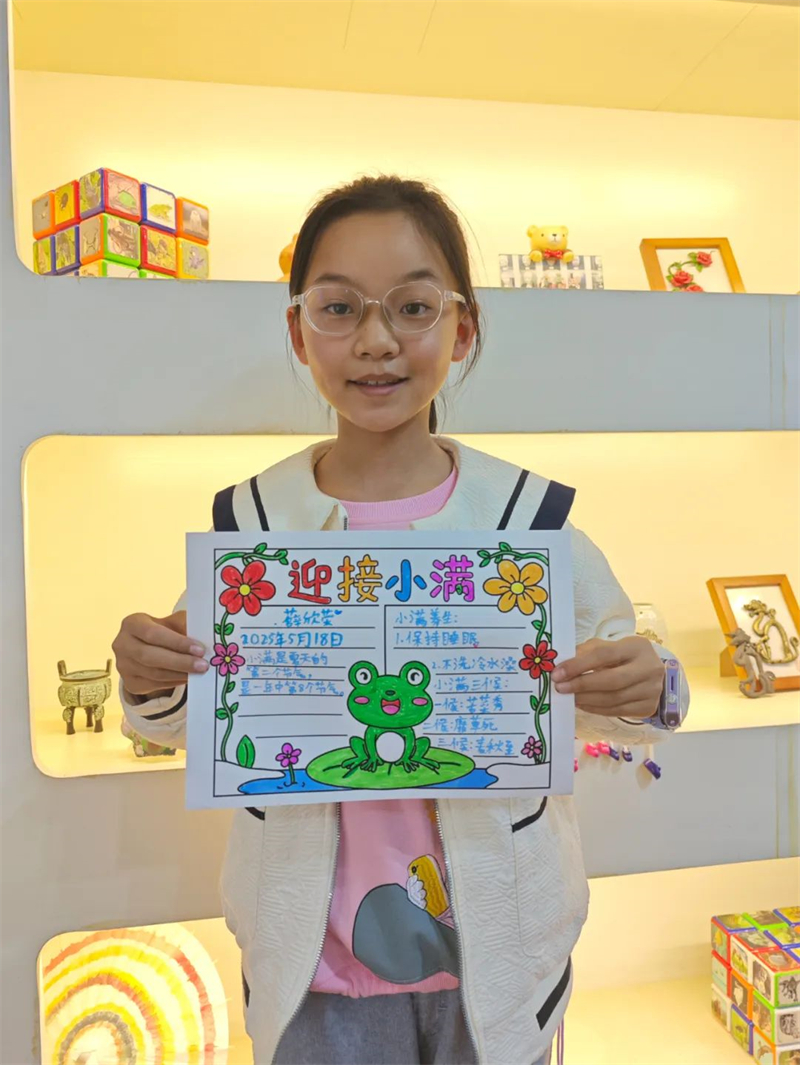 迎接小满
薛欣莹
2025年5月18日
小满是夏天的
第二个节气,
是一年中第8个节气。
小满养生:
1.保持睡眠
2.不洗冷水澡
小满三候:
一候:苦菜秀
二候:靡草死
三候:麦秋至